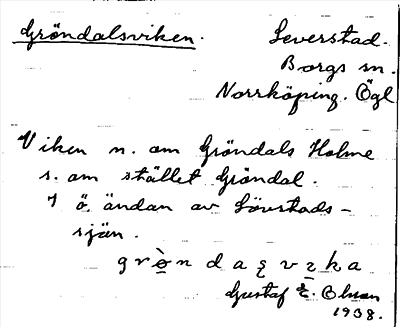 Gröndalsviken. Leverstad.
Borgs sn.
Norrköping. Ögl
Viken n. om Gröndals Holme
s. om stället Gröndal.
I ö. ändan av Lövstads-
sjön.
Gustaf E. Olsson
1938.